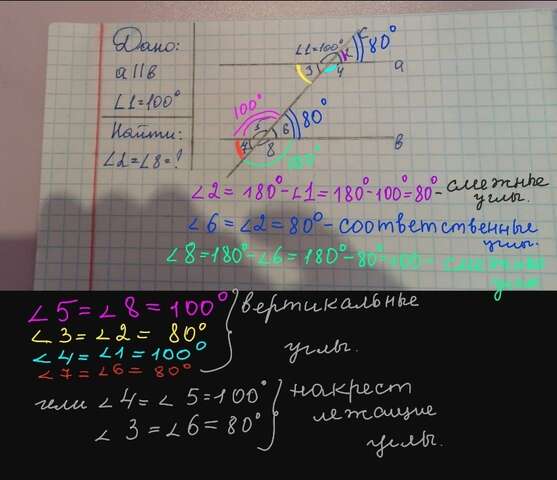 Дано:
a||в
∠1=100°
Найти:
∠2=∠8=?
∠1=100°
80°
3
4
a
100°
80°
6
8
в
∠2=180°-∠1=180°-100°=80°-смежные
углы.
∠6=∠2=80°-соответственные
углы.
∠8=180°-∠6=180°-80°=100-смежные
∠5=∠8=100°
∠3=∠2=80°
∠4=∠1=100°
∠7=∠6=80°
вертикальные
углы.
∠4=∠5=100°
∠3=∠6=80°
накрест
лежащие
углы.